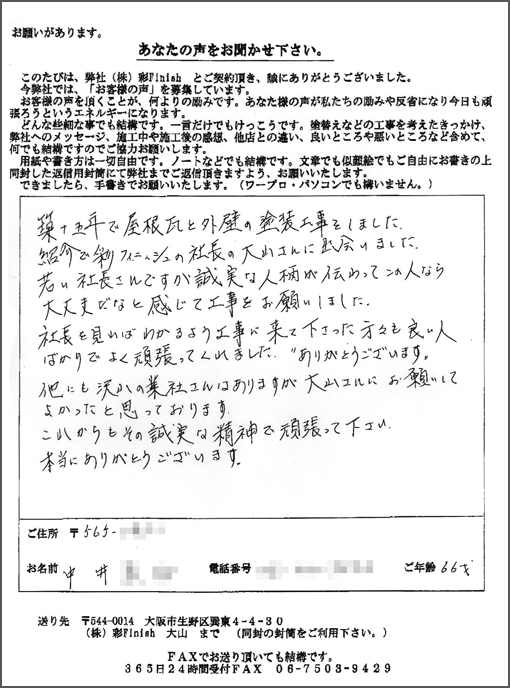 お願いがあります。
あなたの声をお聞かせ下さい。
このたびは、弊社（株）彩Finish とご契約頂き、誠にありがとうございました。
今弊社では、「お客様の声」を募集しています。
お客様の声を頂くことが、何よりの励みです。あなた様の声が私たちの励みや反省になり今日も頑
張ろうというエネルギーになります。
どんな些細な事でも結構です。一言だけでもけっこうです。塗替えなどの工事を考えたきっかけ、
弊社へのメッセージ、施工中や施工後の感想、他店との違い、良いところや悪いところなど含めて、
何でも結構ですのでご協力お願いします。
用紙や書き方は一切自由です。ノートなどでも結構です。文章でも似顔絵でもご自由にお書きの上
同封した返信用封筒にて弊社までご返信頂きますよう、お願いいたします。
できましたら、手書きでお願いいたします。（ワープロ・パソコンでも構いません。）
築十五年で屋根瓦と外壁の塗装工事をしました。
紹介で彩フィニッシュの社長の大山さんに出会いました。
若い社長さんですが誠実な人柄が伝わってこの人なら
大丈夫だなと感じて工事をお願いしました。
社長を見ればわかるよう工事に来て下さった方々も良い人
ばかりでよく頑張ってくれました。"ありがとうございます。
他にも沢山の業社さんはありますが大山さんにお願いして
よかったと思っております。
これからもその誠実な精神で頑張って下さい
本当にありがとうございます。
ご住所 〒565-
お名前 中井 電話番号 ご年齢 66才
送り先 〒544-0014 大阪市生野区巽東4-4-30
（株）彩Finish 大山 まで （同封の封筒をご利用下さい。）
FAXでお送り頂いても結構です。
365日24時間受付FAX 06-7503-9429